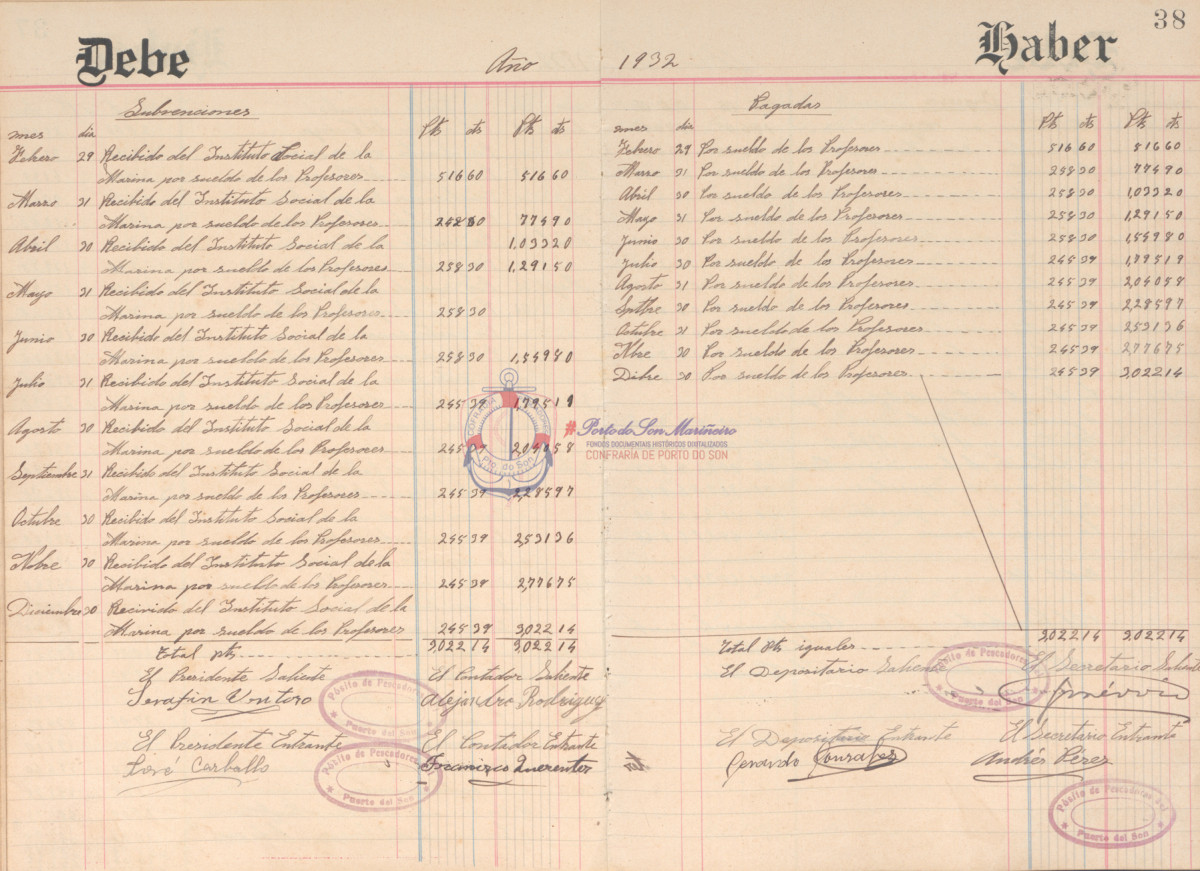 38
Debe Año 1932 Haber
Subvenciones
mes dia Pts cts Pts cts
Febrero 29 Recibido del Instituto Social de la
Marina por sueldo de los Profesores 516 60 516 60
Marzo 31 Recibido del Instituto Social de la
Marina por sueldo de los Profesores 258 30 774 90
Abril 30 Recibido del Instituto Social de la 1,033 20
Marina por sueldo de los Profesores 258 30 1,291 50
Mayo 31 Recibido del Instituto Social de la
Marina por sueldo de los Profesores 258 30
Junio 30 Recibido del Instituto Social de la
Marina por sueldo de los Profesores 258 30 1,549 80
Julio 31 Recibido del Instituto Social de la
Marina por sueldo de los Profesores 245 39 1,795 19
Agosto 30 Recibido del Instituto Social de la
Marina por sueldo de los Profesores 245 39 2,040 58
Septiembre 31 Recibido del Instituto Social de la
Marina por sueldo de los Profesores 245 39 2,285 97
Octubre 30 Recibido del Instituto Social de la
Marina por sueldo de los Profesores 245 39 2,531 36
Nbre 30 Recibido del Instituto Social de la
Marina por sueldo de los Profesores 245 39 2,776 75
Diciembre 30 Recivido del Instituto Social de la
Marina por sueldo de los Profesores 245 39 3,022 14
Total pts 3,022 14 3,022 14
El Presidente Saliente El Contador Saliente
Serafin Ventoso Alejandro Rodriguez
El Presidente Entrante El Contador Entrante
José Carballo Francisco
Pósito de Pescadores
Pósito de Pescadores
Puerto del Son
Pagadas
mes dia Pts cts Pts cts
Febrero 29 Por sueldo de los Profesores 516 60 516 60
Marzo 31 Por sueldo de los Profesores 258 30 774 90
Abril 30 Por sueldo de los Profesores 258 30 1,033 20
Mayo 31 Por sueldo de los Profesores 258 30 1,291 50
Junio 30 Por sueldo de los Profesores 258 30 1,549 80
Julio 30 Por sueldo de los Profesores 245 39 1,795 19
Agosto 31 Por sueldo de los Profesores 245 39 2,040 58
Sptbre 30 Por sueldo de los Profesores 245 39 2,285 97
Octubre 31 Por sueldo de los Profesores 245 39 2,531 36
Nbre 30 Por sueldo de los Profesores 245 39 2,776 75
Dibre 30 Por sueldo de los Profesores 245 39 3,022 14
Total pts iguales 3,022 14 3,022 14
El Depositario Saliente El Secretario Saliente
El Depositario Entrante El Secretario Entrante
Gerardo Gonzalez Andrés Pérez
Pósito de Pescadores
Puerto del Son
Pósito de Pescadores del
Puerto del Son
COFRADIA
Pto. do Son
#Porto do Son Mariñeiro
FONDOS DOCUMENTAIS HISTÓRICOS DIXITALIZADOS.
CONFRARÍA DE PORTO DO SON